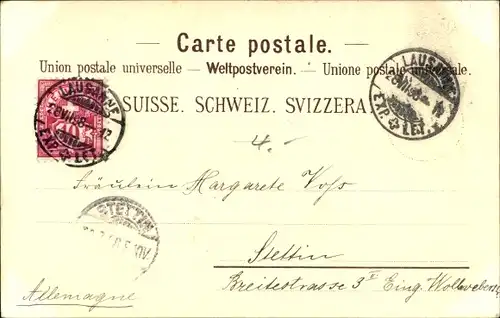 — Carte postale. —
Union postale universelle. — Weltpostverein. — Unione postale universale.
SUISSE. SCHWEIZ. SVIZZERA
LAUSANNE
EXP. LET.
LAUSANNE
EXP. LET.
4.-
Fräulein Margarete Voß
STETTIN
Stettin
Breitestrasse 3I Eing. Wollweberstr
Allemagne